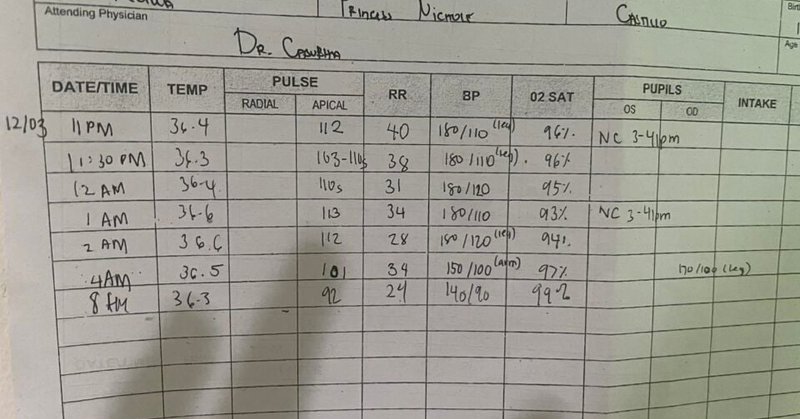 Princess Nicmole Castillo
Attending Physician
Age
Dr.
DATE/TIME TEMP PULSE RR BP 02 SAT PUPILS INTAKE
RADIAL APICAL OS OD
12/03 11 PM 36.4 112 40 180/110 (leg) 96% NC 3-4
11:30 PM 36.3 103-110s 38 180/110 (leg). 96%
12 AM 36.4 110s 31 180/120 95%
1 AM 36.6 113 34 180/110 93% NC 3-4
2 AM 36.6 112 28 180/120 (leg) 94%
4AM 36.5 101 34 150/100 (arm) 97% 170/100 (leg)
8 AM 36.3 92 24 140/90 99%